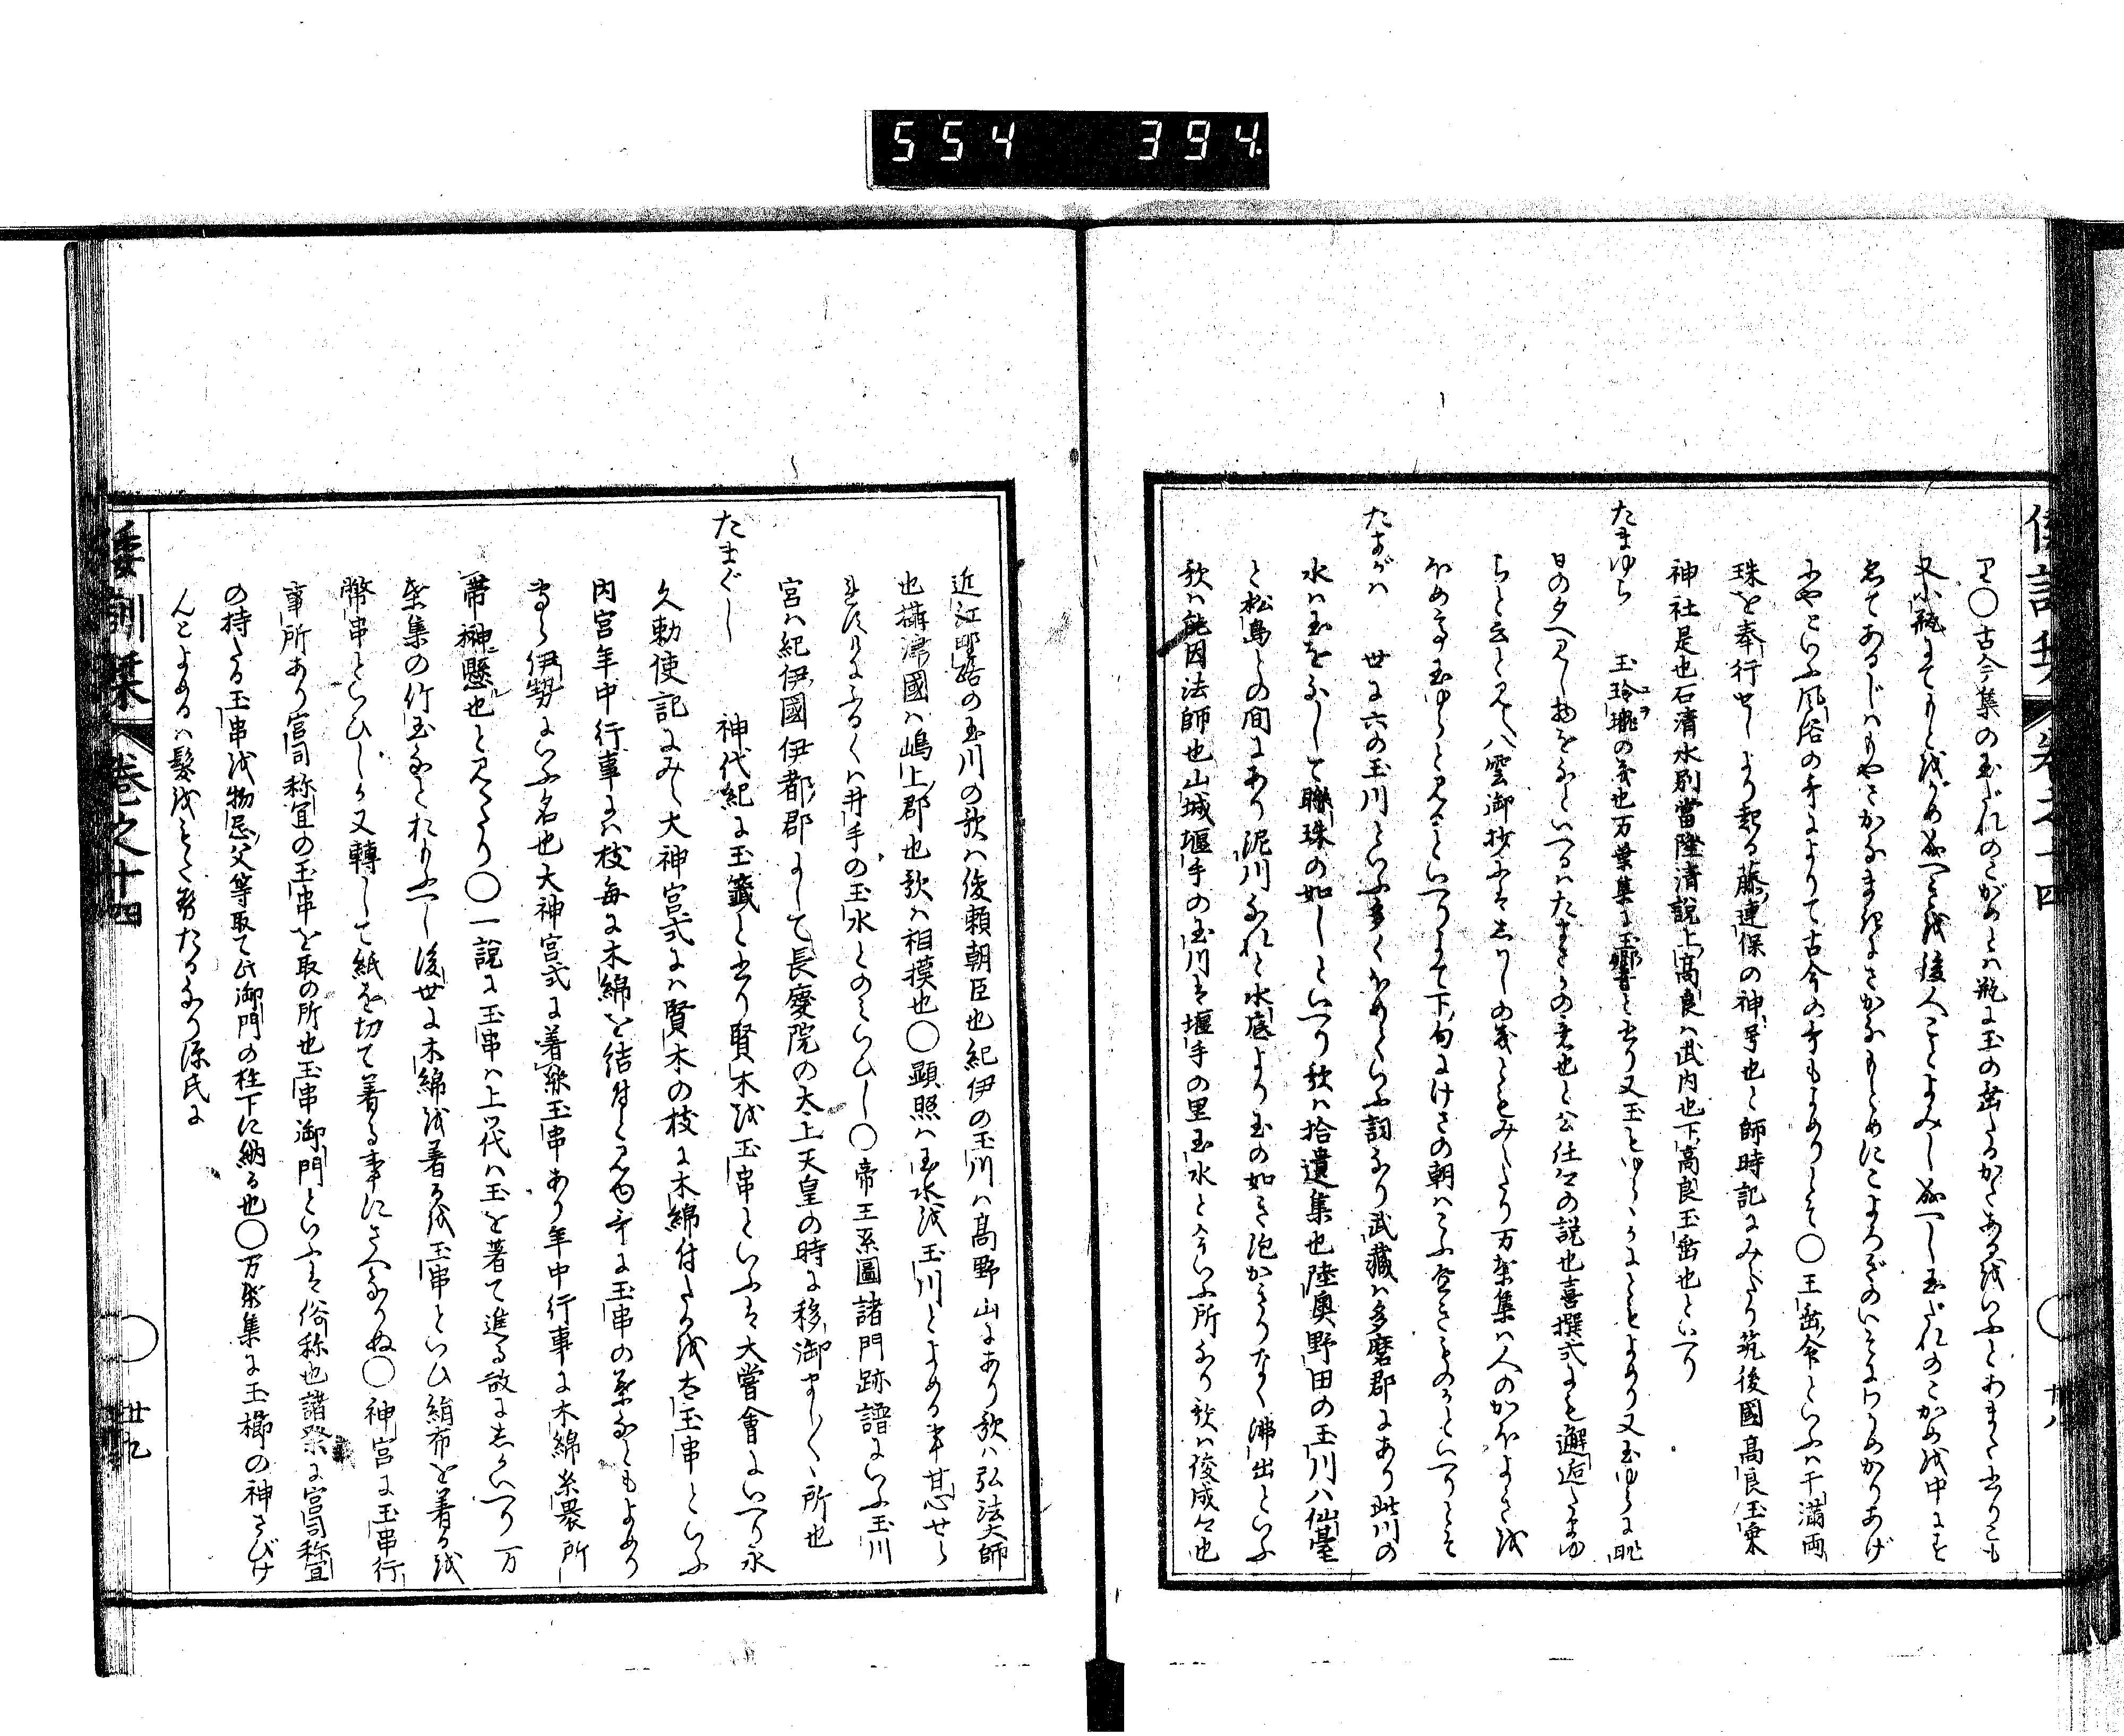 554 394
り○古今集の玉だれのこがめとハ瓶に玉の垂たるかたあるをいふとあまた書りこも
又小瓶にてもとをかめ如へこを後人ことよみし如へし玉だれのこがめを中にす
ゑてあるじはもやさかなまぎにさかなもとめにこよろぎのいそにわかめかりあげ
にやといふ風俗の哥によりて古今の哥もよめりとそ○玉垂命といふハ干満両
珠を奉行せしより起る藤連保の神号也と師時記にみえたり筑後國高良玉垂
神社是也石清水別當陸清説上高良ハ武内也下高良玉垂也といへり
たまゆら　玉玲瓏の義也万葉集に玉響と書り又玉もゆらゝにともよめり又玉ゆらに昨
日の夕へ見し物をなといへるハたまさかの意也と公任卿の説也喜撰式にも邂逅たまゆ
らと云と見え八雲御抄にはしハしの義ともみえたり万葉集ハ人のかほよきを
ほめて玉ゆらと見るといへりさて下句にけさの朝ハこふ
たまがハ　世に六の玉川といふ多くほめていふ詞なり武藏ハ多磨郡にあり此川の
水ハ玉をなして聯珠の如しといへり歌ハ拾遺集也陸奥野田の玉川ハ仙臺
と松島との間にあり泥川なれと水底より玉の如き泡かきりなく沸出といふ
歌ハ能因法師也山城堰手の玉川は堰手の里玉水と今いふ所なり歌ハ俊成卿也
倭訓栞　巻之十四　廿八
近江野路の玉川の歌ハ俊頼朝臣也紀伊の玉川ハ高野山にあり歌ハ弘法大師
也攝津國ハ嶋上郡也歌ハ相摸也○顕照ハ玉水を玉川とよめる事甘心せら
れすけにふるくハ井手の玉水とのミいひし○帝王系圖諸門跡譜にいふ玉川
宮ハ紀伊國伊都郡にして長慶院の太上天皇の時に移御ましゝ所也
たまぐし　神代紀に玉籤と書り賢木を玉串といふは大嘗會にいへり永
久勅使記にみゆ大神宮式にハ賢木の枝に木綿付たるを太玉串といふ
内宮年中行事にハ枝毎に木綿を結付と見ゆ哥に玉串の葉なともよめり
専ら伊勢にいふ名也大神宮式に著絲玉串あり年中行事に木綿糸褁所
帯榊懸也と見えたり○一説に玉串ハ上代ハ玉を著て進る故にしかいへり万
葉集の竹玉なとおもふへし後世に木綿を著るを玉串といひ絹布を著るを
幣串といひしか又轉して紙を切て著る事にさへなりぬ○神宮に玉串行
事所あり宮司称宜の玉串を取の所也玉串御門といふは俗称也諸祭に宮司称宜
の持たる玉串を物忌父等取て此御門の柱下に納る也○万葉集に玉櫛の神さびけ
んとよめるハ髪をとく努たるなり源氏に
倭訓栞　巻之十四　廿九